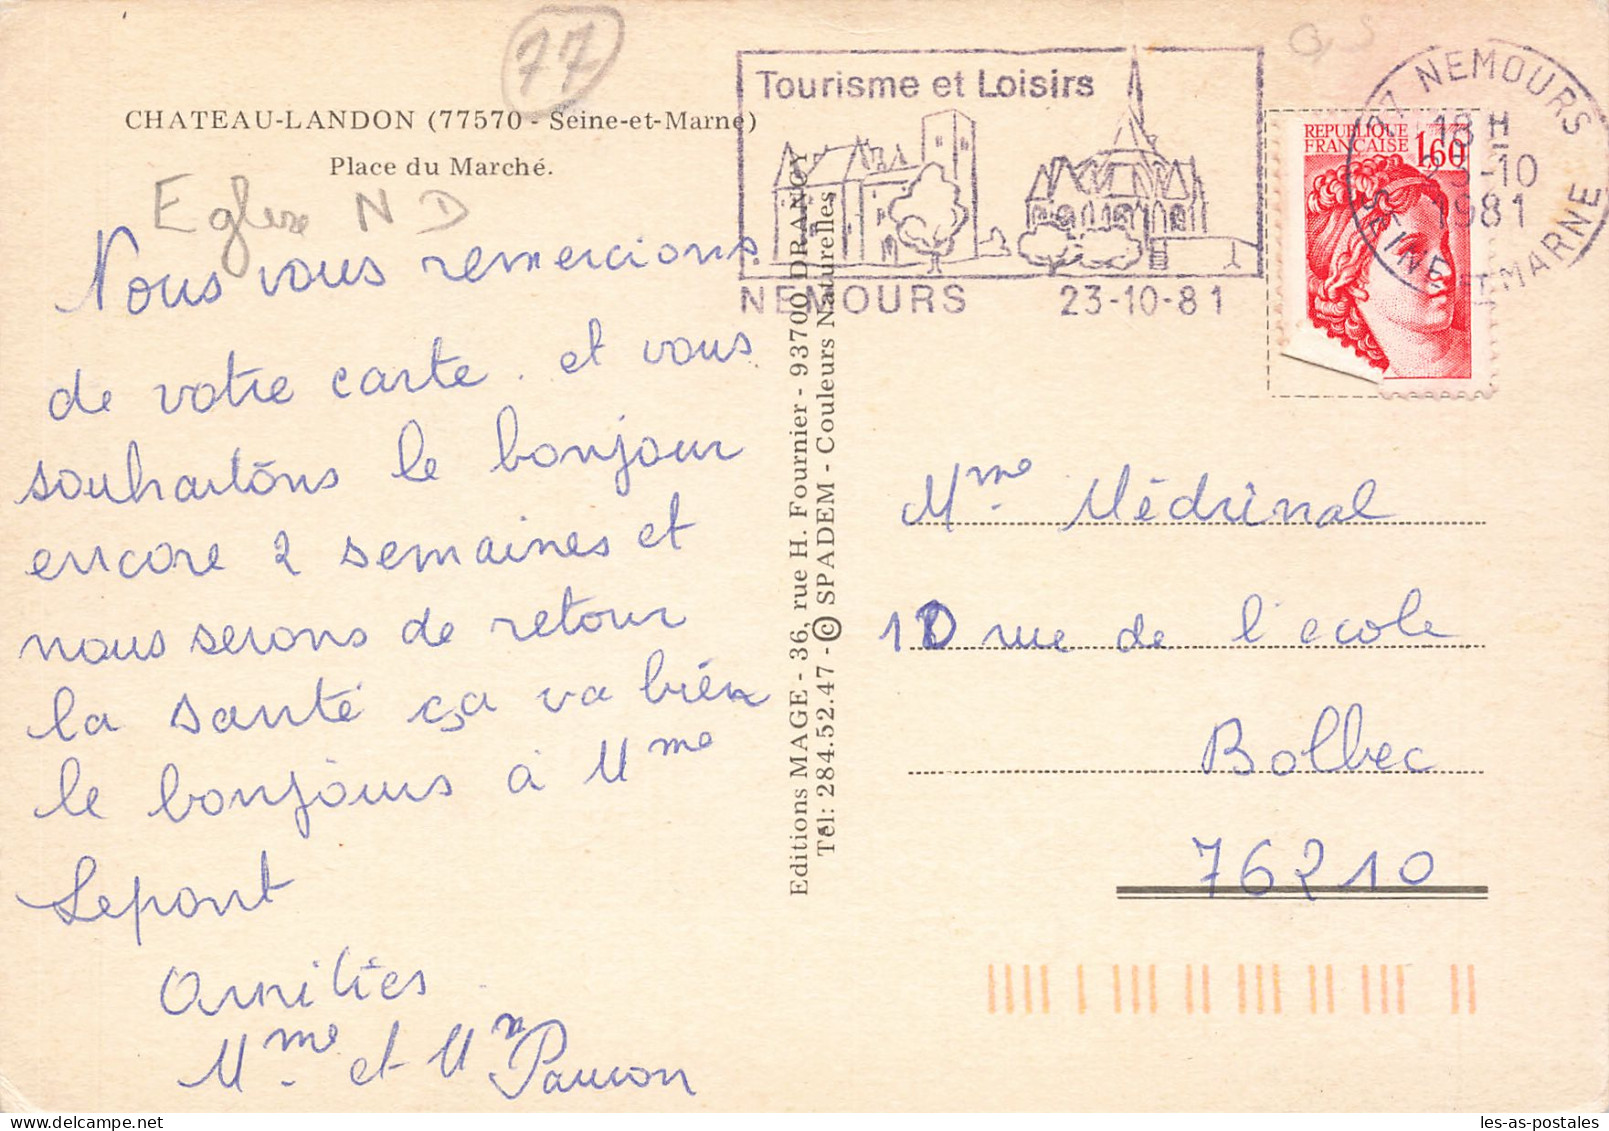 77
CHATEAU-LANDON (77570 - Seine-et-Marne)
Place du Marché.
Eglise N D
Nous vous remercions
de votre carte. et vous
souhaitons le bonjour
encore 2 semaines et
nous serons de retour
la santé ça va bien
le bonjours à Mme
Lepont
Amitiés
Mme et Mr
Editions MAGE - 36, rue H. Fournier - 93700 DRANCY
Tél: 284.52.47 - © SPADEM - Couleurs Naturelles
Tourisme et Loisirs
NEMOURS 23-10-81
REPUBLIQUE
FRANCAISE 1,60
77 NEMOURS
18 H
23-10
1981
SEINE-ET-MARNE
Mme Médrinal
10 rue de l'école
Bolbec
76210
les-as-postales